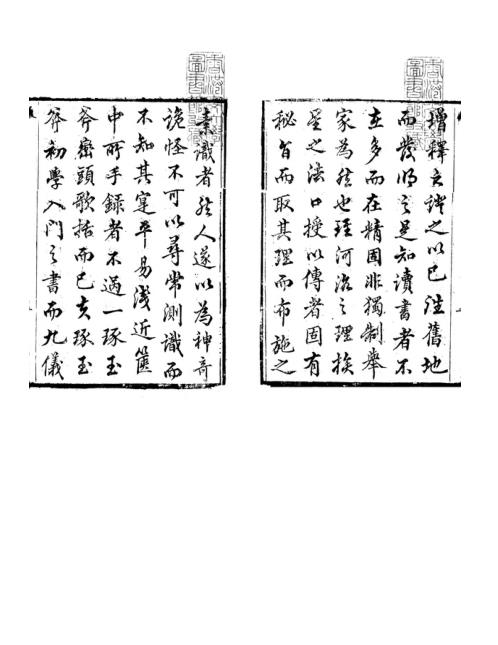 增釋之以已往舊地
而發明之足知讀書者不
在多而在精固非獨制舉
家為然也河洛之理挨
星之法口授以傳者固有
秘旨而取其理而布施之
素識者然人遂以為神奇
詭怪不可以尋常測識而
不知其寔平易淺近篋
中所手錄者不過一琢玉
斧巒頭歌括而已夫琢玉
斧初學入門之書而九儀